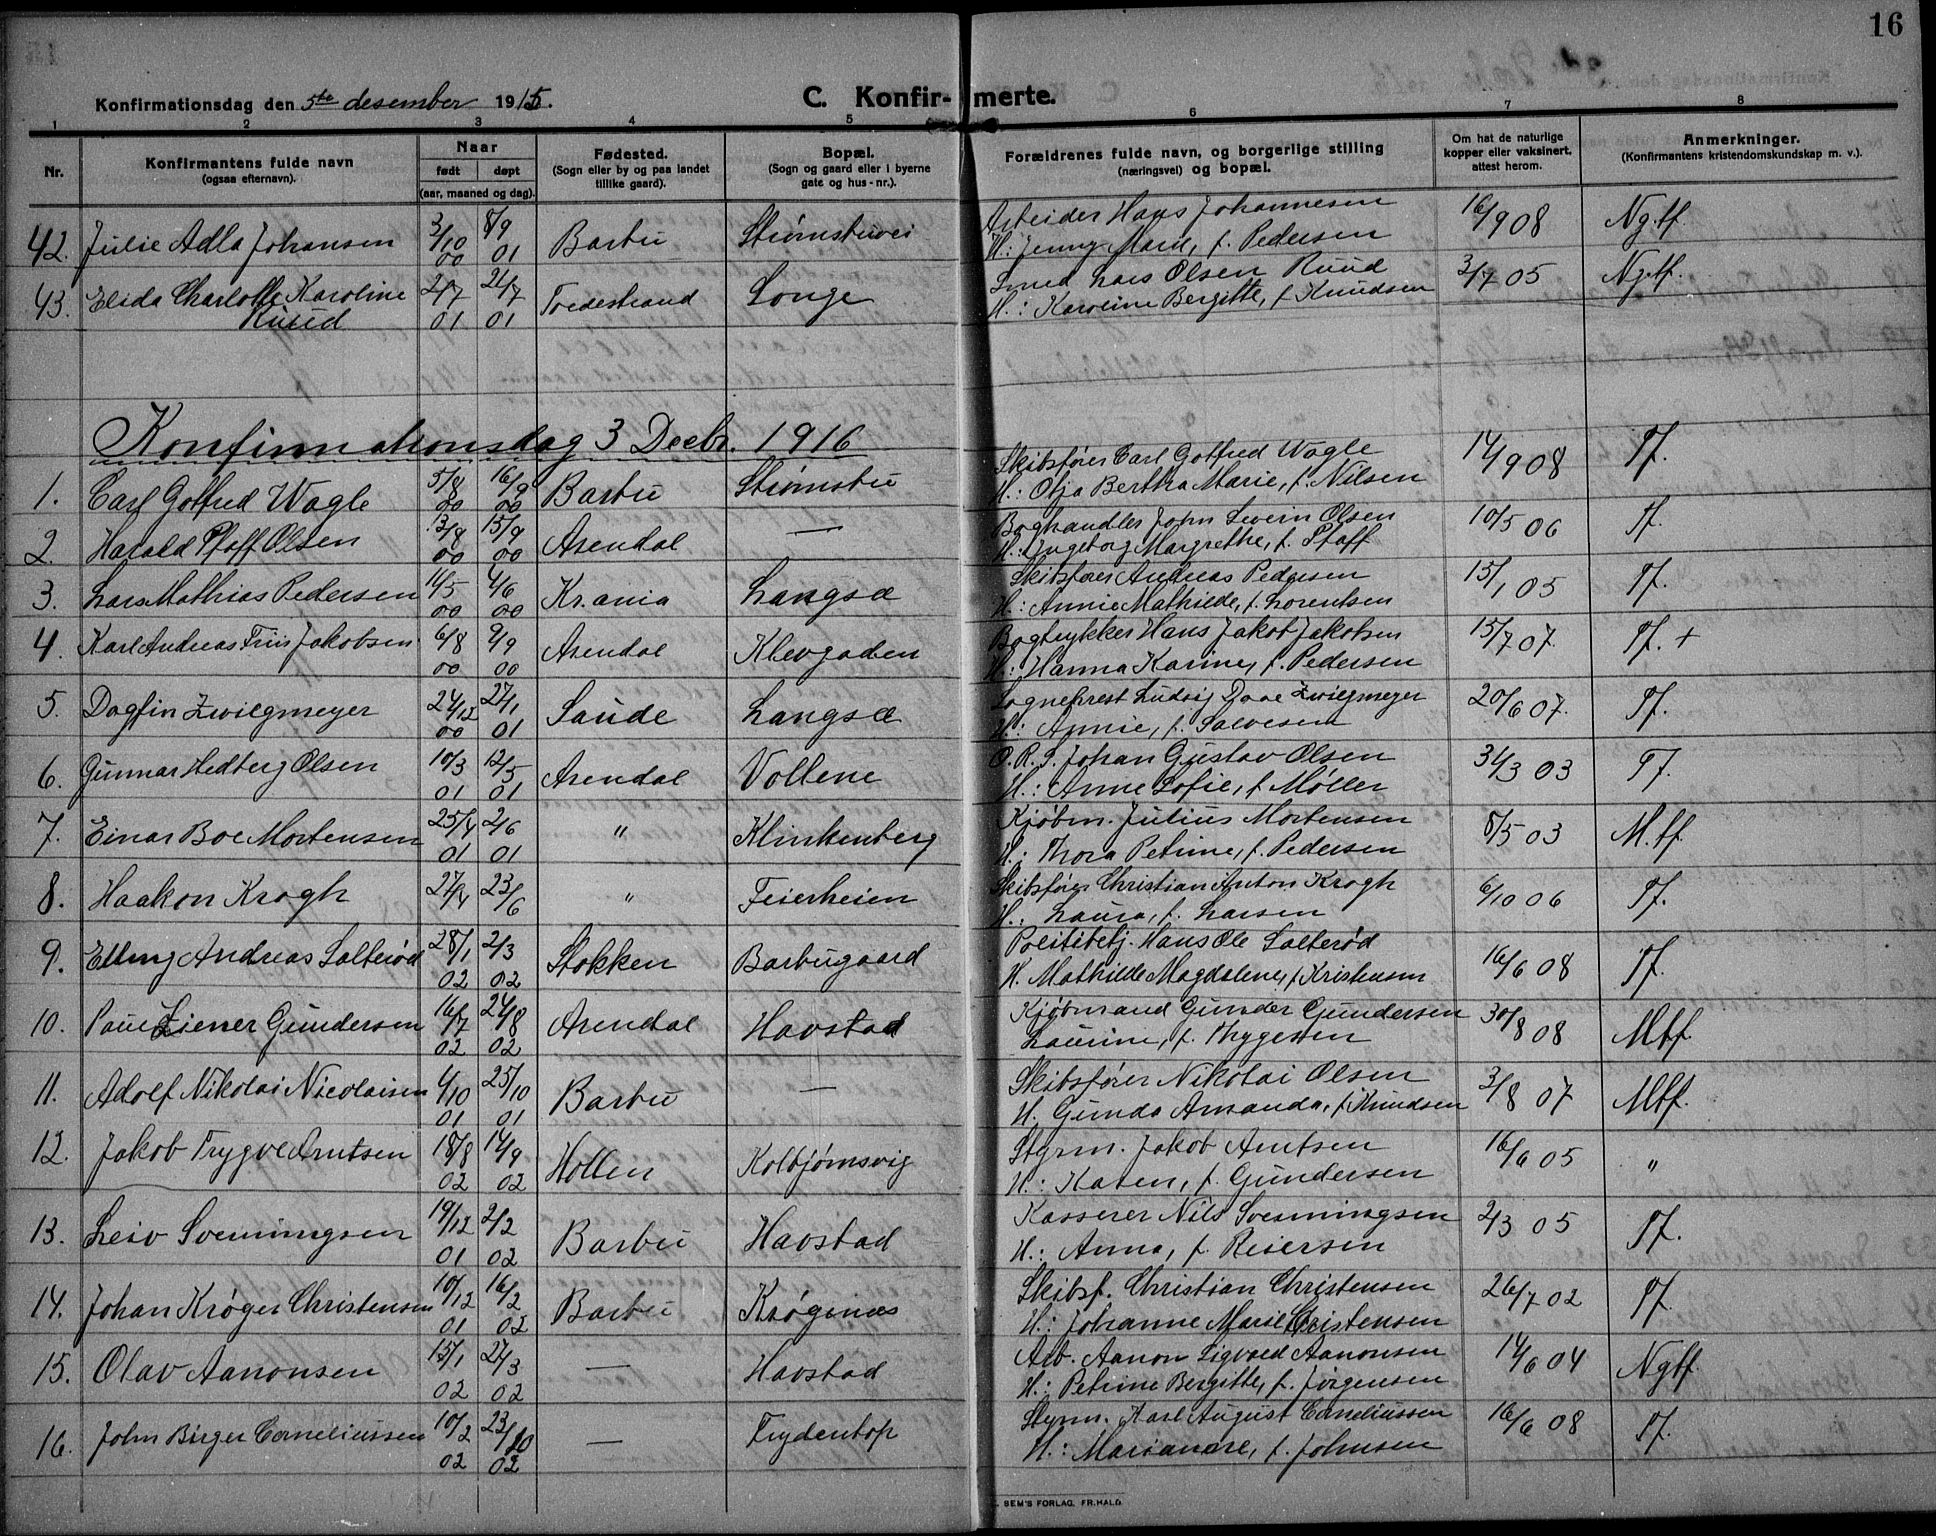 16
Konfirmationsdag den 5te desember 1915.
C. Konfir- merte.
1 2 3 4 5 6 7 8
Nr.
Konfirmantens fulde navn
(ogsaa efternavn).
Naar
født døpt
(aar, maaned og dag).
Fødested.
(Sogn eller by og paa landet
tillike gaard).
Bopæl.
(Sogn og gaard eller i byerne
gate og hus-nr.).
Forældrenes fulde navn, og borgerlige stilling
(næringsvei) og bopæl.
Om hat de naturlige
kopper eller vaksinert,
attest herom.
Anmerkninger.
(Konfirmantens kristendomskundskap m. v.).
42. Julie Adla Johansen 3/10 00 8/9 01 Barbu Strømsbuvei Arbeider Hans Johannesen 16/9 08 Ng.tf.
H: Jenny Marie, f. Pedersen
43. Elida Charlotte Karoline 2/7 01 21/7 01 Tvedestrand Songe Smed Lars Olsen Ruud 3/7 05 Ng.tf.
Ruud H: Karoline Bergitte, f. Knudsen
Konfirmationsdag 3 Decbr. 1916
1. Carl Gotfred Wagle 5/8 00 16/9 00 Barbu Strømsbu Skibsfører Carl Gotfred Wagle 14/9 08 Tf.
H: Olja Bertha Marie, f. Nilsen
2. Harald Pfaff Olsen 13/8 00 15/9 00 Arendal — Boghandler John Severin Olsen 10/5 06 Tf.
H: Ingeborg Margrethe, f. Pfaff
3. Lars Mathias Pedersen 16/5 00 4/6 00 Kr.ania Langsæ Skibsfører Andreas Pedersen 15/1 05 Tf.
H: Annie Mathilde, f. Lorentsen
4. Karl Andreas Friis Jakobsen 6/8 00 9/9 00 Arendal Klevgaden Bogtrykker Hans Jakob Jakobsen 15/7 07. Tf. +
H: Hanna Karine, f. Pedersen
5. Dagfin Zwilgmeyer 24/12 00 27/1 01 Saude Langsæ Sogneprest Ludvig Daae Zwilgmeyer 20/6 07. Tf.
H: Annie, f. Salvesen
6. Gunnar Hedberg Olsen 10/3 01 12/5 01 Arendal Vollene O.R.S. Johan Gustav Olsen 31/3 03 Tf.
H: Anne Sofie, f Møller
7. Einar Boe Mortensen 25/4 01 2/6 01 " Klinkenberg Kjøbm. Julius Mortensen 8/5 03 M.tf.
H: Thora Petrine, f. Pedersen
8. Haakon Krogh 27/4 23/6 " Feierheien Skibsfører Christian Anton Krogh 6/10 06 Tf.
H: Laura, f. Larsen
9. Elling Andreas Salterød 28/1 02 2/3 02 Stokken Barbugaard Politibetj. Hans Ole Salterød 16/6 08 Tf.
H. Mathilde Magdalene, f Kristensen
10. Paul Ziener Gundersen 16/7 02 24/8 02 Arendal Havstad Kjøbmand Gunder Gundersen 30/8 08 Mtf.
Laurine, f. Thygesen
11. Adolf Nikolai Nicolaisen 6/10 01 25/10 01 Barbu — Skibsfører Nikolai Olsen 3/8 07 Mtf.
H. Gunda Amanda, f. Knudsen
12. Jakob Trygve Arntsen 18/8 02 14/9 02 Hollen Kolbjørnsvig Styrm. Jakob Arntsen 16/6 05 "
H: Karen, f. Gundersen
13. Leiv Svenningsen 19/12 01 2/2 02 Barbu Havstad Kasserer Nils Svenningsen 2/3 05 Tf.
H: Anna, f. Reiersen
14. Johan Krøger Christensen 10/12 01 16/2 02 Barbu Krøgenæs Skibsf. Christian Christensen 26/7 02 Tf.
H: Johanne Marie Christensen
15. Olav Aanonsen 15/1 02 27/3 02 — Havstad Arb. Aanon Sigvald Aanonsen 14/6 04 Ngtf.
H: Petrine Bergitte, f. Jørgensen
16. John Birger Corneliussen 10/2 02 23/10 02 — Frydentop Styrm. Karl August Corneliussen 16/6 08 Tf.
H: Marianne, f. Johnsen
SEM'S FORLAG, FR.HALD